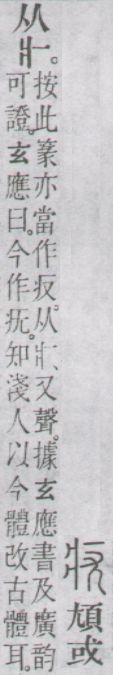 疣 𩑣或
从疒。
按此篆亦當作㽱。从疒、又聲。據玄應書及廣韵
可證。玄應曰。今作疣。知淺人以今體改古體耳。